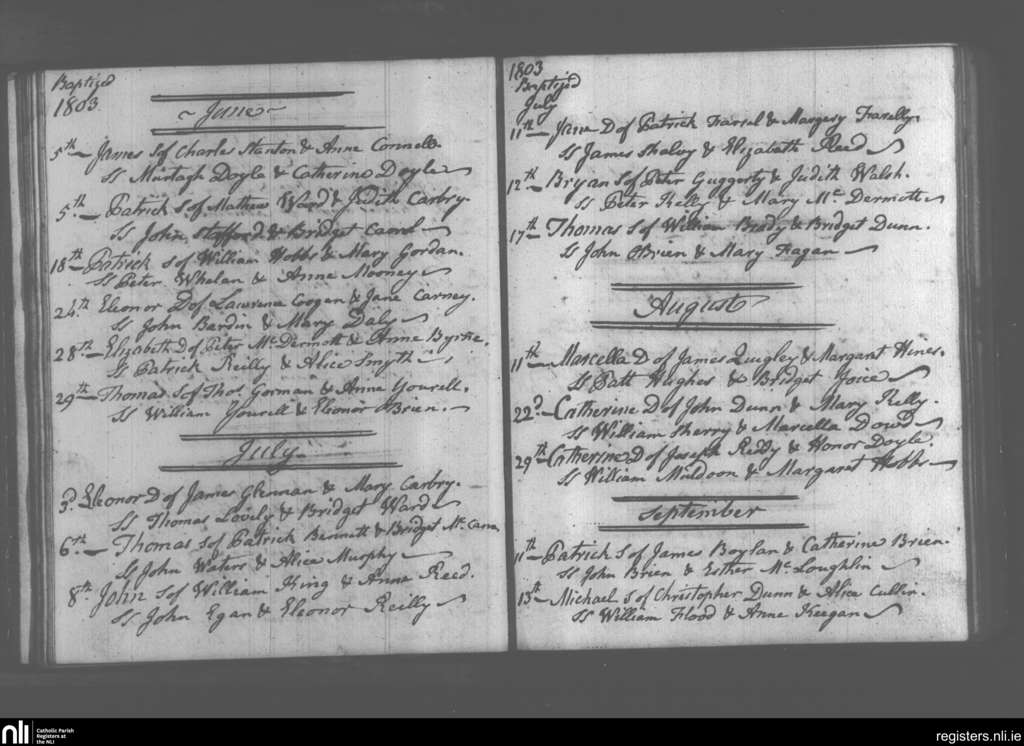 Baptized
1803
~ June ~
5th — James S of Charles Stanton & Anne Connell.
Ss Murtagh Doyle & Catherine Doyle
5th — Patrick S of Mathew Ward & Judith Carbry.
Ss John Stafford & Bridget
18th — Patrick S of William Hobbs & Mary Gordan.
Ss Peter Whelan & Anne Mooney
24th Eleonor D of Lawrence Coogan & Jane Carney.
Ss John Bardin & Mary Daly
28th — Elizabeth D of Peter Mc Dermott & Anne Byrne.
Ss Patrick Reilly & Alice Smyth
29th — Thomas S of Thos. Gorman & Anne Yourell.
Ss William Yourell & Eleonor OBrien.
July
3d. Eleonor D of James Glennan & Mary Carbry.
Ss Thomas Lovely & Bridget Ward
6th — Thomas S of Patrick Bennett & Bridget Mc Cann
Ss John Waters & Alice Murphy
8th John S of William King & Anne Reed.
Ss John Egan & Eleonor Reilly
1803
Baptized
July
11th — Jane D of Patrick Farrel & Margery Farrelly.
Ss James & Elizabeth Reed
12th — Bryan S of Peter Guggerty & Judith Walsh.
Ss Peter Kelly & Mary Mc Dermott
17th — Thomas S of William Brady & Bridget Dunn.
Ss John OBrien & Mary Fagan
August
11th — Marcella D of James Quigley & Margaret Hines.
Ss Patt Hughes & Bridget Joice
22d — Catherine D of John Dunn & Mary Kelly.
Ss William Sherry & Marcella Dowd
29th — Catherine D of Joseph Reddy & Honor Doyle.
Ss William Muldoon & Margaret Hobbs
September
11th — Patrick S of James Boylan & Catherine Brien.
Ss John Brien & Esther Mc Loughlin
13th — Michael S of Christopher Dunn & Alice Cullin.
Ss William Flood & Anne Keegan
nli Catholic Parish
Registers at
the NLI
registers.nli.ie